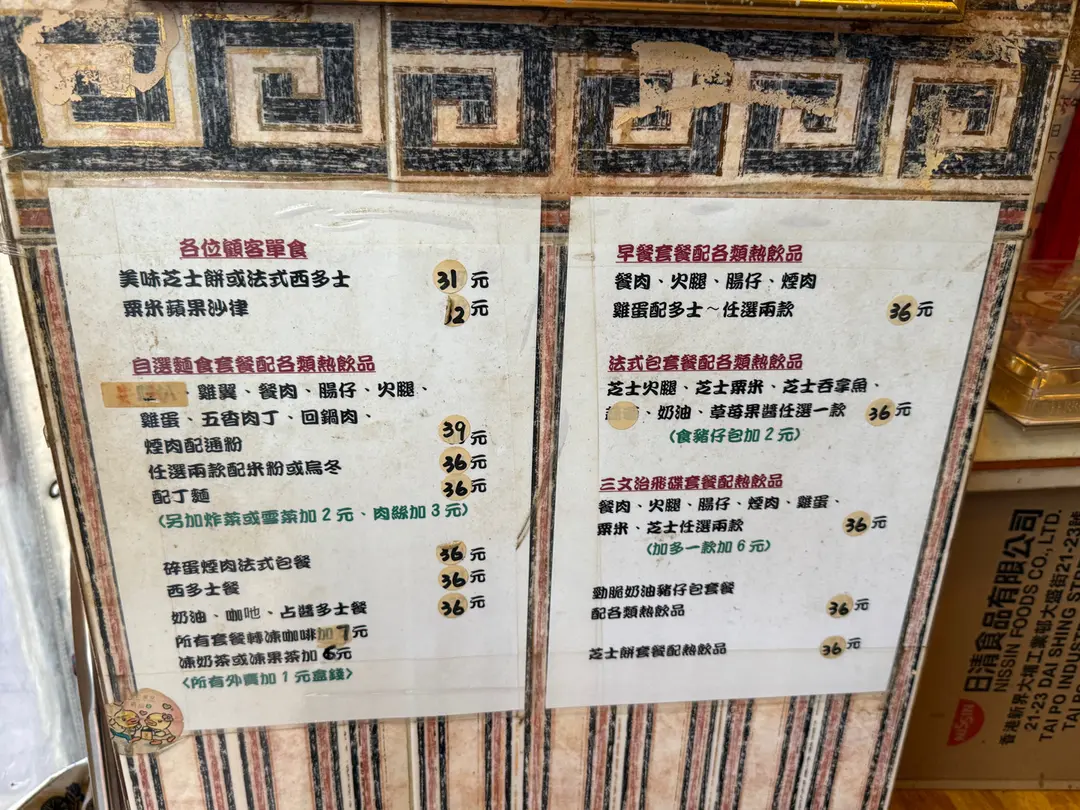 各位顧客單食
美味芝士餅或法式西多士 31元
粟米蘋果沙律 12元
自選麵食套餐配各類熱飲品
、雞翼、餐肉、腸仔、火腿、
雞蛋、五香肉丁、回鍋肉、
煙肉配通粉 39元
任選兩款配米粉或烏冬 36元
配丁麵 36元
(另加炸菜或雪菜加2元、肉絲加3元)
碎蛋煙肉法式包餐 36元
西多士餐 36元
奶油、咖吔、占醬多士餐 36元
所有套餐轉凍咖啡加7元
凍奶茶或凍果茶加6元
(所有外賣加1元盒錢)
早餐套餐配各類熱飲品
餐肉、火腿、腸仔、煙肉
雞蛋配多士~任選兩款 36元
法式包套餐配各類熱飲品
芝士火腿、芝士粟米、芝士吞拿魚、
、奶油、草苺果醬任選一款 36元
(食豬仔包加2元)
三文治飛碟套餐配熱飲品
餐肉、火腿、腸仔、煙肉、雞蛋、
粟米、芝士任選兩款 36元
(加多一款加6元)
勁脆奶油豬仔包套餐
配各類熱飲品 36元
芝士餅套餐配熱飲品 36元
日清食品有限公司
NISSIN FOODS CO., LTD.
香港新界大埔工業邨大盛街21-23號
21-23 DAI SHING STRE
TAI PO INDUSTR
NISSIN